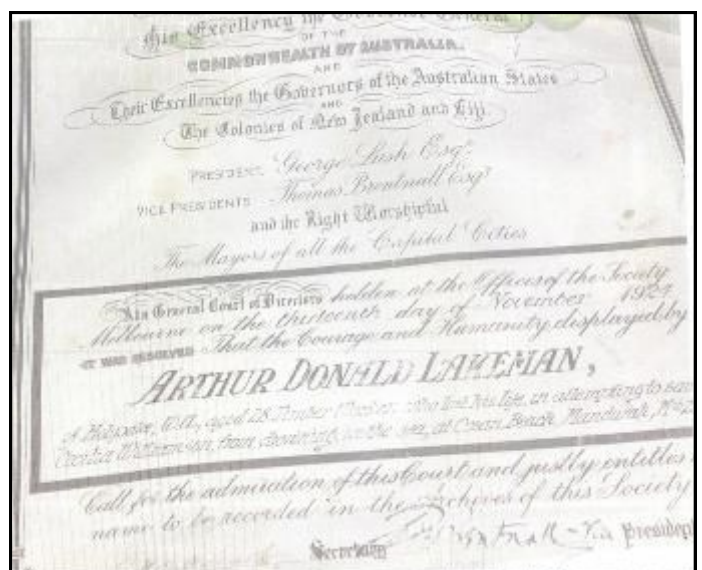 His Excellency the Governor General
OF THE
COMMONWEALTH OF AUSTRALIA.
AND
Their Excellencies the Governors of the Australian States
AND
The Colonies of New Zealand and Fiji
PRESIDENT. George Lush Esqr
VICE PRESIDENTS Thomas Brentnall Esqr
and the Right Worshipful
The Mayors of all the Capital Cities
At a General Court of Directors holden at the Offices of the Society
Melbourne on the thirteenth day of November
IT WAS RESOLVED That the Courage and Humanity displayed by
ARTHUR DONALD LAKEMAN,
W.A., aged 28 Timber who lost his life, in attempting to
Williamson, from drowning, in the sea, at Beach, Mandurah,
Call for the admiration of this Court and justly entitles
name to be recorded in the Archives of this Society
Vice President
Secretary